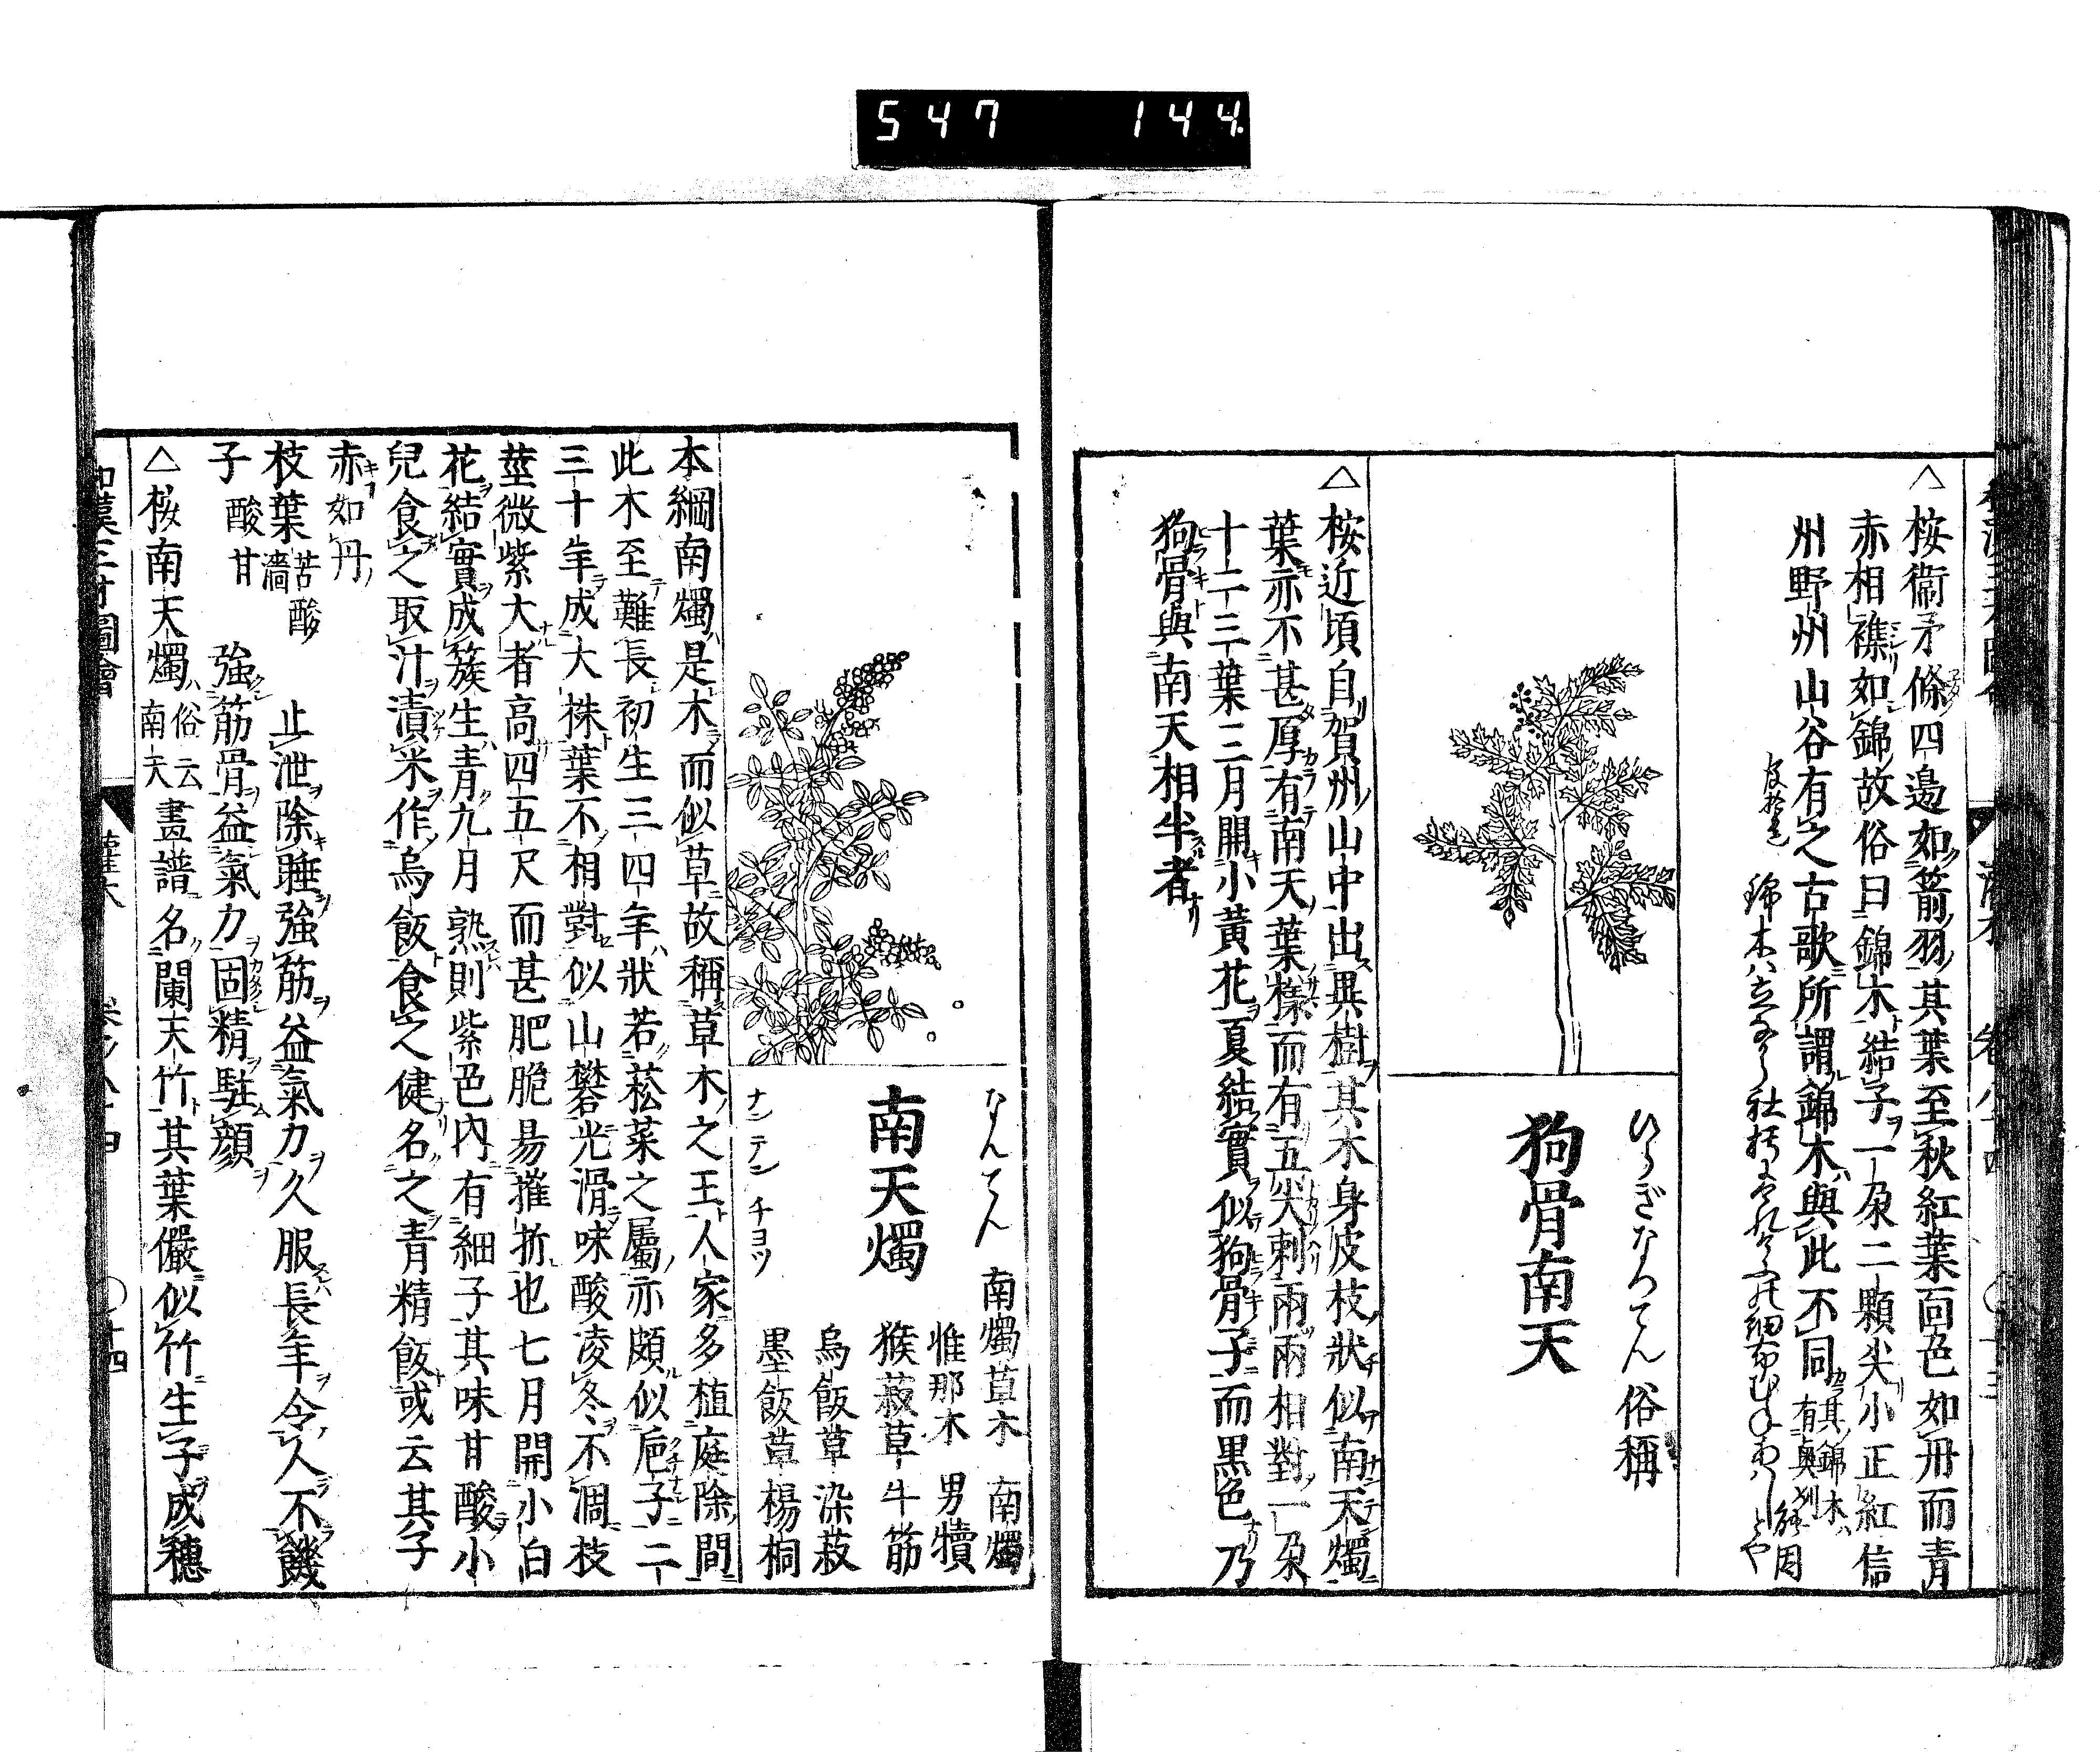 547 144.
△桉衞矛條四邉如箭羽其葉至秋紅葉靣色如丹而青
赤相襍如錦故俗曰錦木結子一朶二顆尖小正紅信
州野州山谷有之古歌所謂錦木與此不同
△桉近頃自賀州山中出異樹其木身皮枝狀似南天燭
葉亦不甚厚有南天葉樣而有五尖刺兩兩相對一朶
十二三葉三月開小黃花夏結實似狗骨子而黒色乃
狗骨與南天相半者
ひらぎなんてん 俗稱
狗骨南天
なんてん
南天燭
ナンテン チヨツ
南燭草木 南燭
惟那木 男犢
猴菽草 牛筋
烏飯草 染菽
墨飯草 楊桐
本綱南燭是木而似草故稱草木之王人家多植庭除間
此木至難長初生三四年狀若菘菜之屬亦頗似巵子二
三十年成大株葉不相對似山礬光滑味酸凌冬不凋枝
莖微紫大者高四五尺而甚肥脆昜摧折也七月開小白
花結實成簇生青九月熟則紫色內有細子其味甘酸小
兒食之取汁漬米作烏飯食之健名之青精飯或云其子
赤如丹
枝葉 苦酸濇 止泄除睡強筋益氣力久服長年令人不饑
子 酸甘 強筋骨益氣力固精駐顔
△桉南天燭 俗云南天 畫譜名闌天竹其葉儼似竹生子成穗